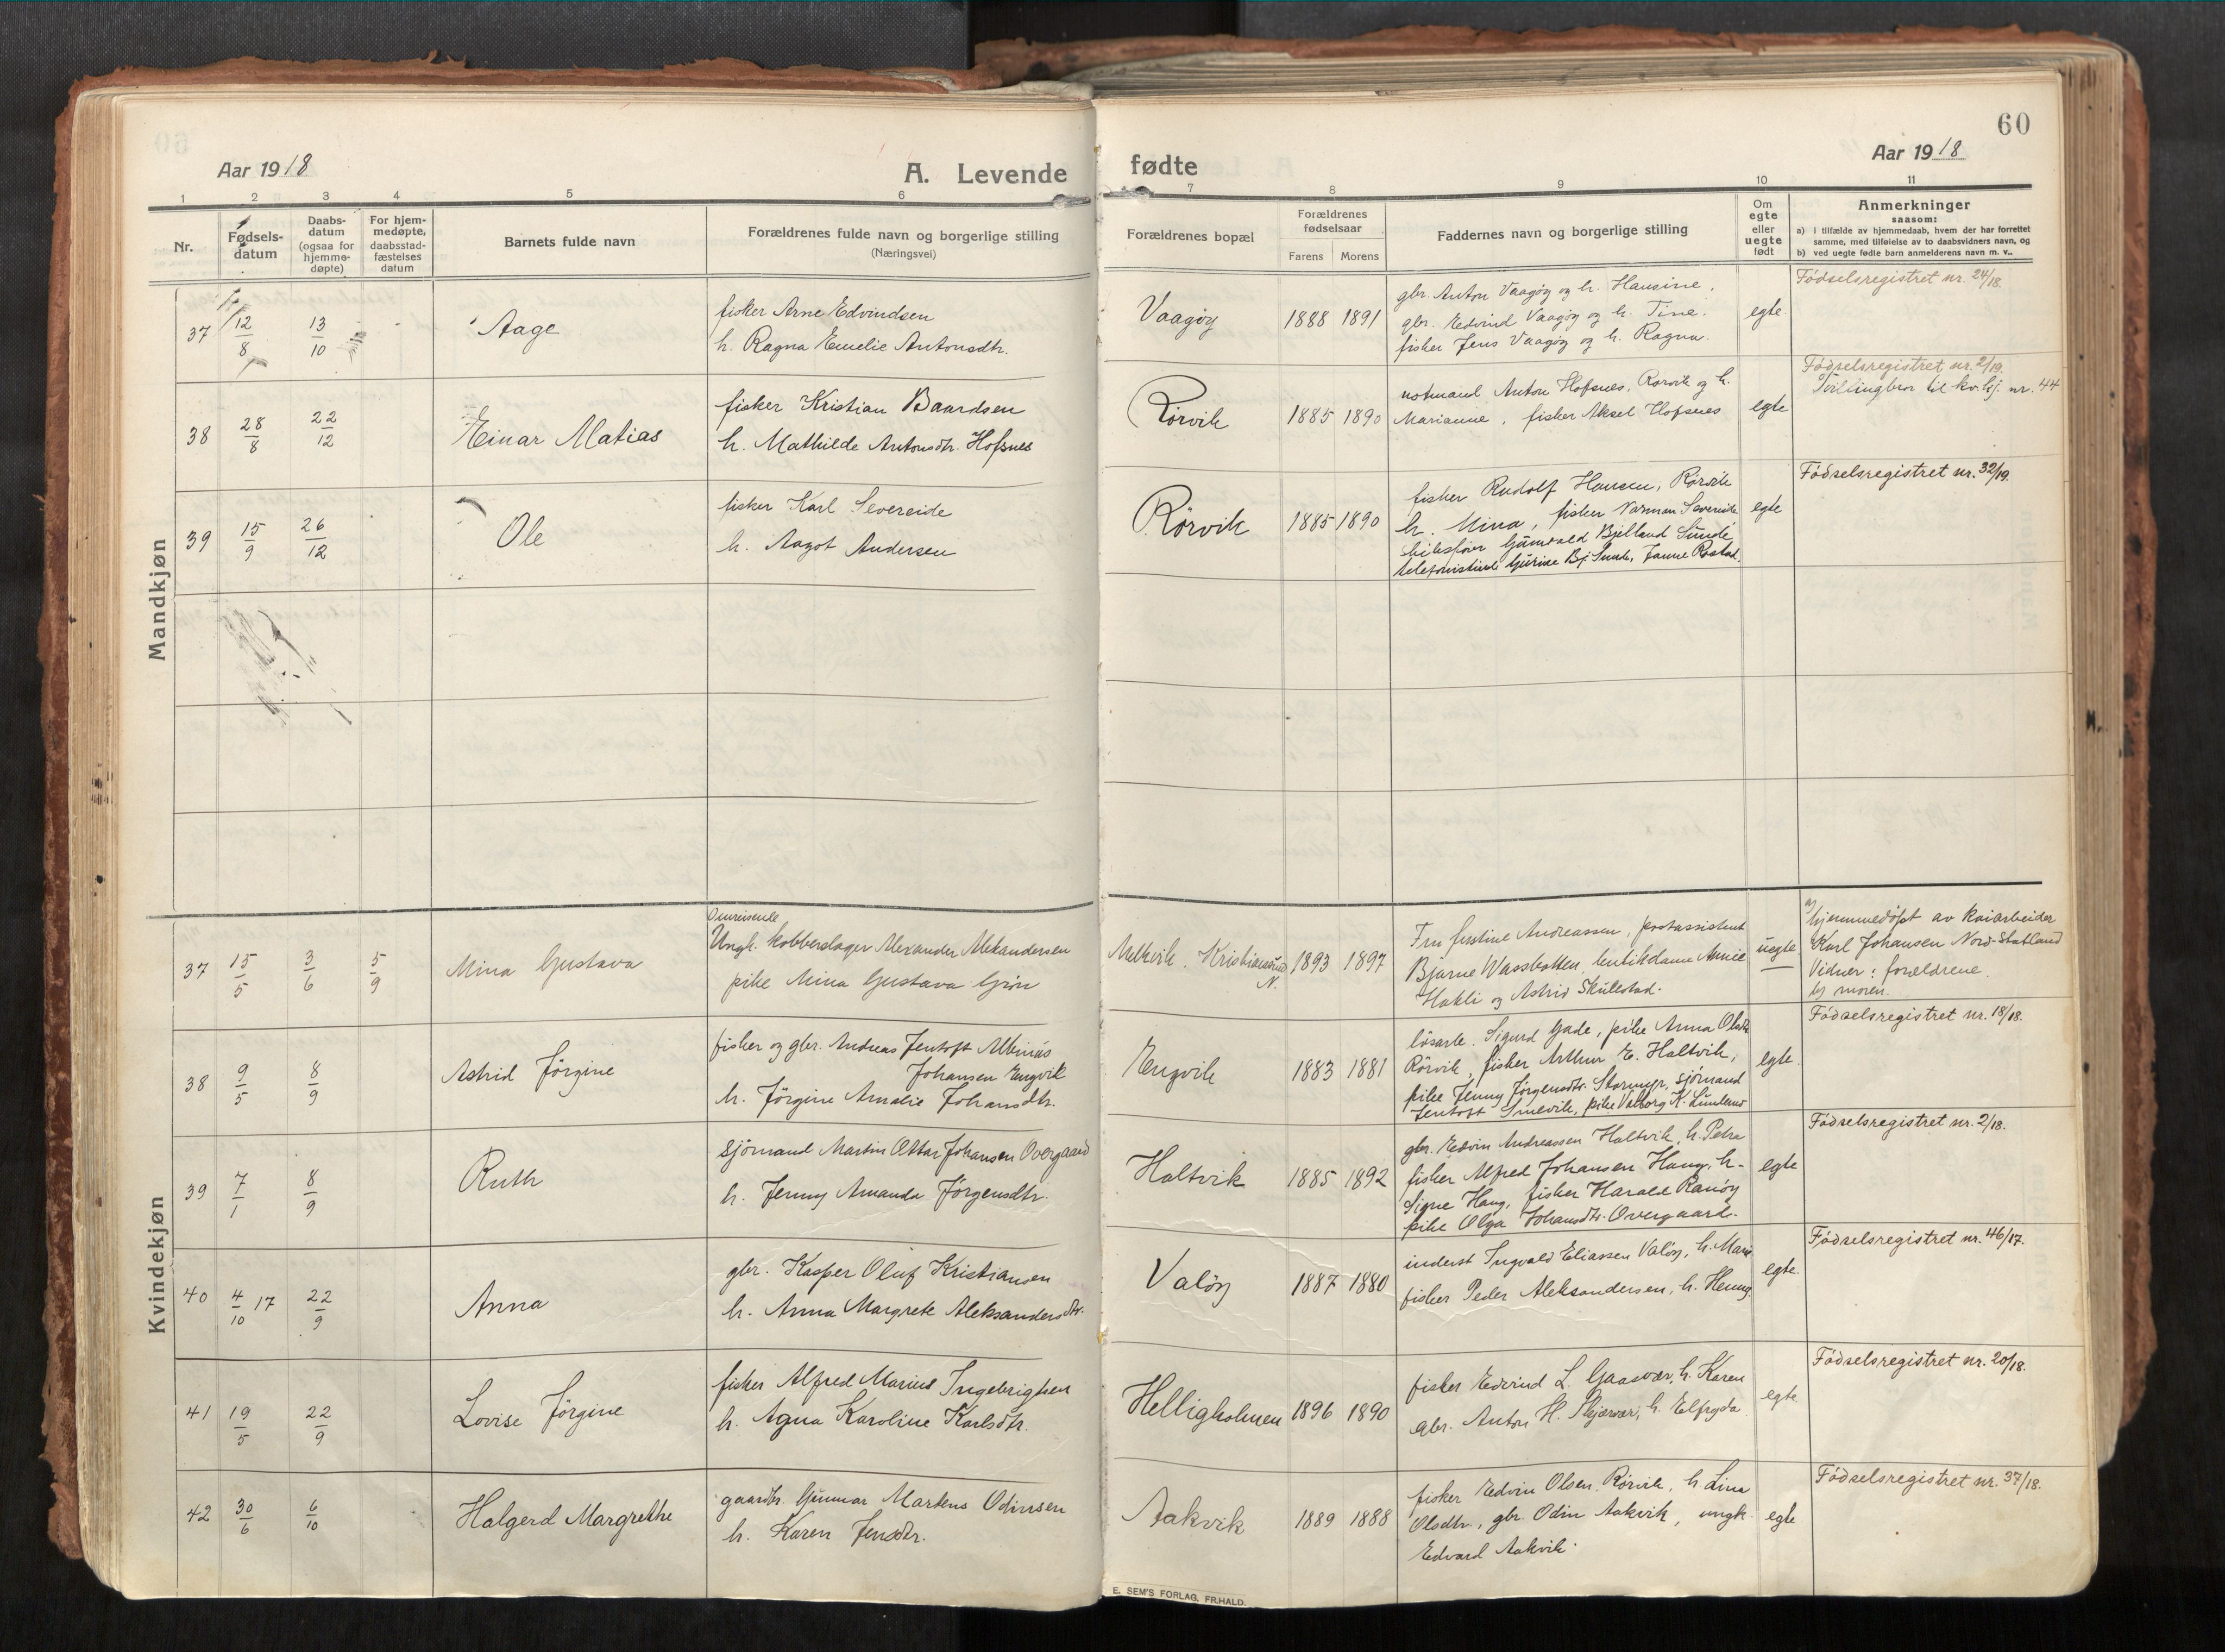 60
Aar 1918
A. Levende fødte
Aar 1918
1 2 3 4 5 6 7 8 9 10 11
Nr.
Fødsels-
datum
Daabs-
datum
(ogsaa for
hjemme-
døpte)
For hjem-
medøpte,
daabsstad-
fæstelses
datum
Barnets fulde navn
Forældrenes fulde navn og borgerlige stilling
(Næringsvei)
Forældrenes bopæl
Forældrenes
fødselsaar
Farens Morens
Faddernes navn og borgerlige stilling
Om
egte
eller
uegte
født
Anmerkninger
saasom:
a) i tilfælde av hjemmedaab, hvem der har forrettet
samme, med tilføielse av to daabsvidners navn, og
b) ved uegte fødte barn anmelderens navn m. v..
Mandkjøn
37 12/8 13/10 Aage
fisker Arne Edvindsen
h. Ragna Emelie Antonsdtr.
Vaagøy 1888 1891
gbr. Anton Vaagøy og h. Hansine,
gbr. Edvind Vaagøy og h. Tine.
fisker Jens Vaagøy og h. Ragna.
egte
Födselsregistret nr. 24/18.
38 28/8 22/12 Einar Matias
fisker Kristian Baardsen
h. Mathilde Antonsdtr. Hofsnes
Rörvik 1885 1890
notmand Anton Hofsnes, Rörvik og h.
Marianne, fisker Aksel Hofsnes
egte
Födselsregistret nr. 2/19.
Tvillingbror til kv.kj. nr. 44
39 15/9 26/12 Ole
fisker Karl Severeide
h. Aagot Andersen
Rörvik 1885 1890
fisker Rudolf Hansen, Rörvik
h. Mina, fisker Norman Severeide
Gunvald Bjelland Sunde
telefonistinde Gurine Bj. Sunde, Janne Rostad.
egte
Födselsregistret nr. 32/19.
Kvindekjøn
37 15/5 3/6 5/9 Mina Gustava
Omreisende
Ungk. kobberslager Alexander Alexandersen
pike Mina Gustava Grön
Melkvik. Kristiansund
N.
1893 1897
Fru Justine Andreassen, postassistent
Bjarne Wassbotten, butikdame Annie
Hakli og Astrid Skullestad.
uegte
a) hjemmedöpt av kaiarbeider
Karl Johansen Nord-Statland
Vidner: forældrene.
b) moren.
38 9/5 8/9 Astrid Jörgine
fisker og gbr. Andreas Jentoft Albinus
Johansen Engvik
h. Jörgine Amalie Johansdtr.
Engvik 1883 1881
lösarb. Sigurd Gade, pike Anna Olsdtr
Rörvik, fisker Arthur E. Haltvik,
pike Jenny Jörgensdtr. Stormyr, sjömand
Jentoft Smevik, pike Valborg K. Lundend
egte.
Födselsregistret nr. 18/18.
39 7/1 8/9 Ruth
sjömand Martin Ottar Johansen Overgaard
h. Jenny Amanda Jörgensdtr.
Haltvik 1885 1892
gbr. Edvin Andreassen Haltvik, h. Petra
fisker Alfred Johansen Haug, h.
Signe Haug, fisker Harald Ranöy
pike Olga Johansdtr. Overgaard.
egte
Födselsregistret nr. 2/18.
40 4/10 17 22/9 Anna
gbr. Kasper Oluf Kristiansen
h. Anna Margrete Aleksandersdtr.
Valöy 1887 1880
inderst Ingvald Eliassen Valöy, h. Marie
fisker Peder Aleksandersen, h. Henny.
egte.
Födselsregistret nr. 46/17.
41 19/5 22/9 Lovise Jörgine
fisker Alfred Marius Ingebrigtsen
h. Agna Karoline Karlsdtr.
Helligholmen 1896 1890
fisker Edvind L. Gaasvær, h. Karen
gbr. Anton H. Skjærvær, h. Elfryda
egte
Födselsregistret nr. 20/18.
42 30/6 6/10 Halgerd Margrethe
gaardbr. Gunnar Martens Odinsen
h. Karen Jensdtr.
Aakvik 1889 1888
fisker Edvin Olsen, Rörvik, h Lina
Olsdtr., gbr. Odin Aakvik, ungk.
Edvard Aakvik.
egte
Födselsregistret nr. 37/18.
E. SEM'S FORLAG, FR.HALD.